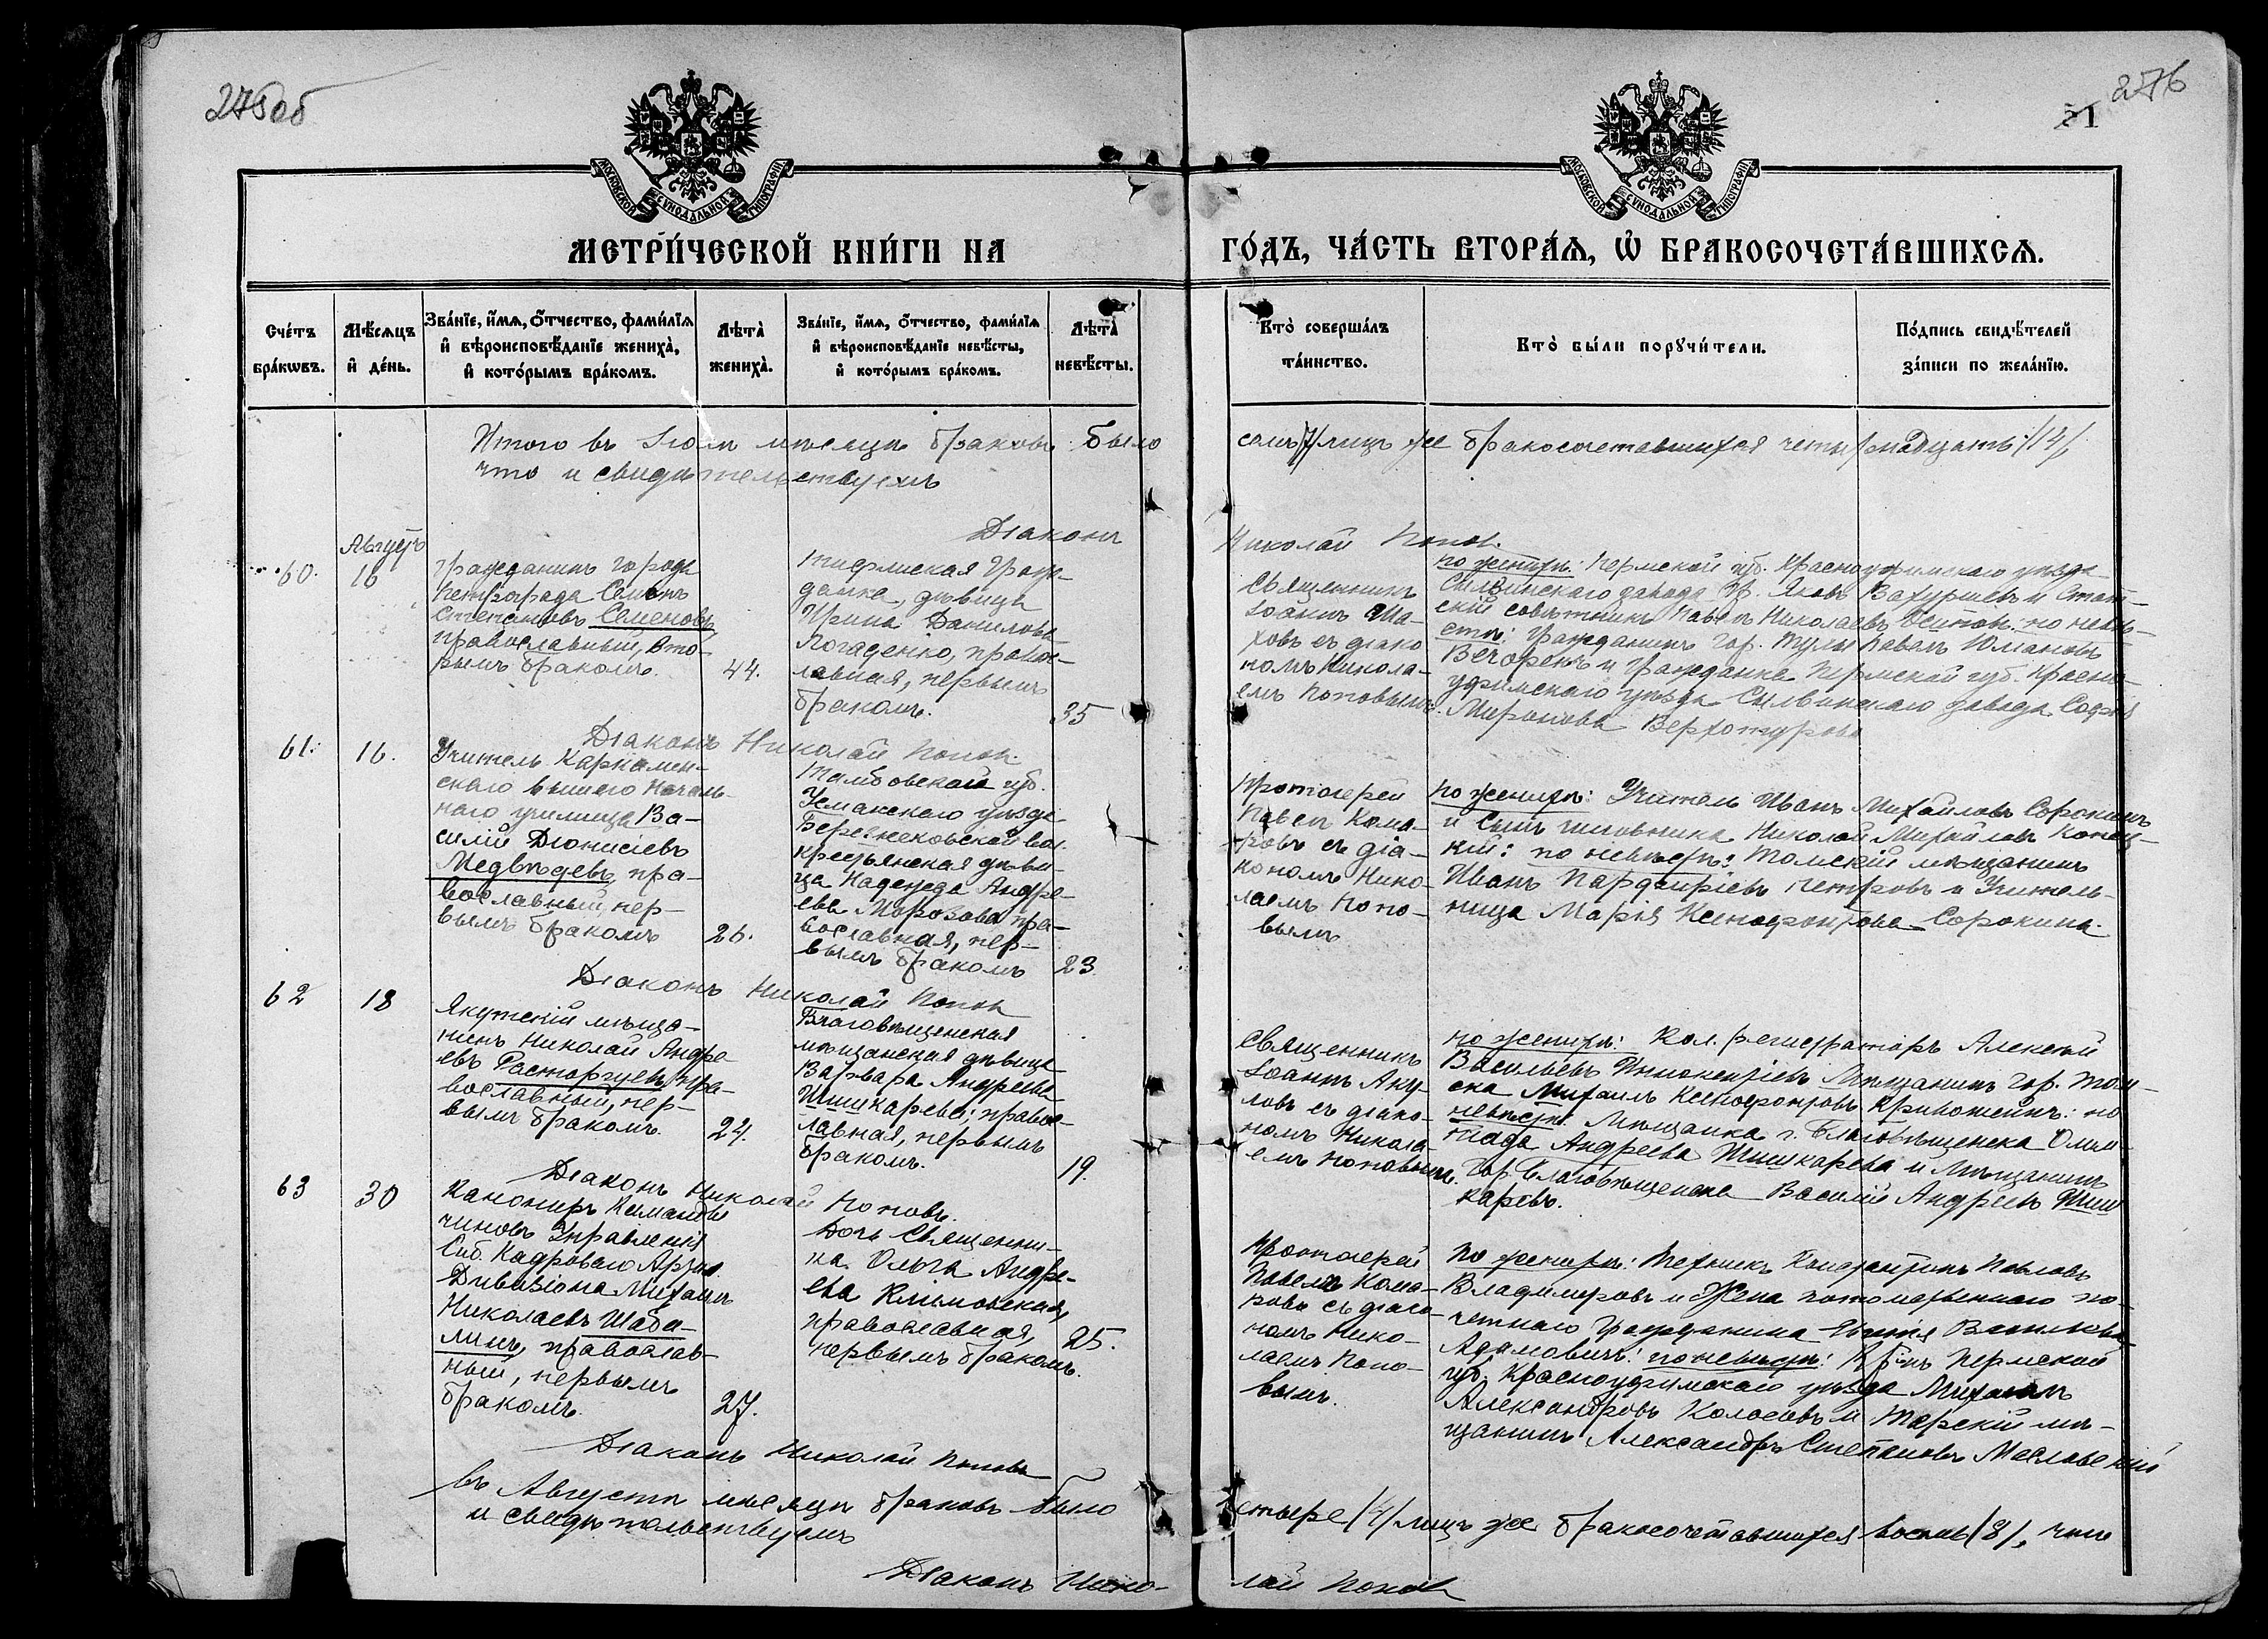 275об
276
21
МОСКОВСКОЙ СѴНОДАЛЬНОЙ ТИПОГРАФІИ
МОСКОВСКОЙ СѴНОДАЛЬНОЙ ТИПОГРАФІИ
МЕТРИ́ЧЕСКОЙ КНИ́ГИ НА
ГО́ДЪ, ЧА́СТЬ ВТОРА́Ѧ, Ѡ БРАКОСОЧЕТА́ВШИХСѦ.
Сче́тъ бра́кѡвъ.
Мѣ́сѧцъ и де́нь.
Зва́нїе, и́мѧ, о́тчество, фами́лїѧ
и вѣроисповѣ́данїе жениха̀,
и кото́рымъ бра́комъ.
Лѣта̀ жениха̀.
Зва́нїе, и́мѧ, о́тчество, фами́лїѧ
и вѣроисповѣ́данїе невѣ́сты,
и кото́рымъ бра́комъ.
Лѣта̀ невѣ́сты.
Кто̀ соверша́лъ
та́инство.
Кто̀ бы́ли порꙋчи́тели.
По́дпись свидѣ́телей
за́писи по жела́нїю.
Итого въ Іюлѣ мѣсяцѣ браковъ было
семь /7/ лицъ же бракосочетавшихся четырнадцать /14/
что и свидѣтельствуемъ
Діаконъ
Николай Поповъ
60.
Августъ
16
Гражданинъ города
Петрограда Семенъ
Степановъ Семеновъ,
православный, вто-
рымъ бракомъ.
44.
Тифлиская граж-
данка, дѣвица
Ирина Данилова
Погаденко, право-
лавная, первымъ
бракомъ.
35
Священникъ
Іоаннъ Ша-
ховъ съ діако
номъ Никола-
емъ Поповымъ.
по женихѣ: Пермской губ. Красноуфимскаго уѣзда
Сылвинскаго завода гр. Яковъ Вахрушевъ и Стат-
скій совѣтникъ Павелъ Николаевъ Осиповъ: по невѣ-
стѣ: гражданинъ гор. Тулы Павелъ
и гражданка Пермской губ. Красно-
уфимскаго уѣзда Сылвинскаго завода Софія
Миронова Верхотурова
Діаконъ Николай Поповъ.
61.
16.
Учитель
скаго высшаго Началь-
наго училища Ва-
силій Діонисіевъ
Медвѣдевъ, пра-
вославный, пер-
вымъ бракомъ
26.
Тамбовской губ.
Усманскаго уѣзда
вол.
крестьянская дѣви-
ца Надежда Андре-
ева Морозова пра-
вославная, пер-
вымъ бракомъ
23.
Протоіерей
Павелъ Кома-
ровъ съ діа-
кономъ Нико-
лаемъ Попо-
вымъ
По женихѣ: Учитель Иванъ Михайловъ Сорокинъ
и сынъ чиновника Николай Михайловъ
по невѣстѣ: Томскій мѣщанинъ
Иванъ Петровъ и Учитель-
ница Марія Ксенофонтова Сорокина.
Діаконъ Николай Поповъ
62
18
Якутскій мѣща-
нинъ Николай Андре
евъ Расторгуевъ, пра-
вославный, пер-
вымъ бракомъ.
24.
Благовѣщенская
мѣщанская дѣвица
Варвара Андреева
Шишкарева; право-
лавная, первымъ
бракомъ.
19.
Священникъ
Іоаннъ Аку-
ловъ съ діако-
номъ Никола-
емъ Поповымъ.
по женихѣ: Кол. регистраторъ Алексѣй
Васильевъ Иннокентіевъ Мѣщанинъ гор. Том-
ска Михаилъ Ксенофонтовъ Кривошеинъ: по
невѣстѣ: Мѣщанка г. Благовѣщенска Олим-
піада Андреева Шишкарева и Мѣщанинъ
гор. Благовѣщенска Василій Андреевъ Шиш
каревъ.
Діаконъ Николай Поповъ.
63
30
Канониръ Команды
чиновъ Управленія
Сиб. Кадроваго Арт.
Дивизіона Михаилъ
Николаевъ Шаба-
линъ, православ-
ный, первымъ
бракомъ.
27.
Дочь Священни-
ка Ольга Андре-
ева Климовская,
православная,
первымъ бракомъ.
25.
Протоіерей
Павелъ Кома-
ровъ съ діако-
номъ Нико-
лаемъ Попо-
вымъ.
По женихѣ: Техникъ Константинъ Павловъ
Владимировъ и Жена потомственнаго по-
четнаго гражданина Васильева
Адамовичъ: по невѣстѣ: Кр-нъ Пермской
губ. Красноуфимскаго уѣзда Михаилъ
Александровъ Колосовъ и Тарскій мѣ-
щанинъ Александръ Степановъ Масловскій
Діаконъ Николай Поповъ
въ Августѣ мѣсяцѣ браковъ было
четыре /4/ лицъ же бракосочетавшихся восемь /8/, что
и свидѣтельствуемъ
Діаконъ Нико-
лай Поповъ